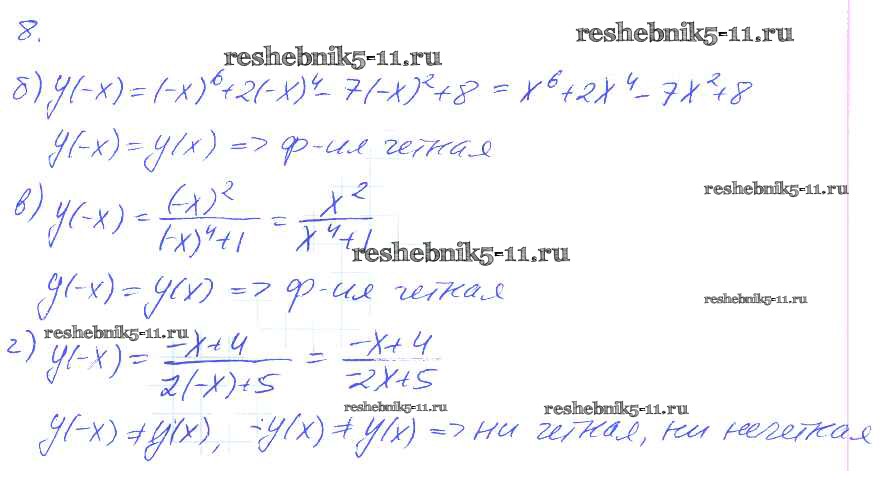 8.
reshebnik5-11.ru
reshebnik5-11.ru
б) y(-x) = (-x)⁶+2(-x)⁴-7(-x)²+8 = x⁶+2x⁴-7x²+8
y(-x) = y(x) => ф-ия четная
reshebnik5-11.ru
в) y(-x) = (-x)²/((-x)⁴+1) = x²/(x⁴+1)
reshebnik5-11.ru
y(-x) = y(x) => ф-ия четная
reshebnik5-11.ru
reshebnik5-11.ru
г) y(-x) = (-x+4)/(2(-x)+5) = (-x+4)/(-2x+5)
reshebnik5-11.ru
reshebnik5-11.ru
y(-x) ≠ y(x), -y(x) ≠ y(x) => ни четная, ни нечетная